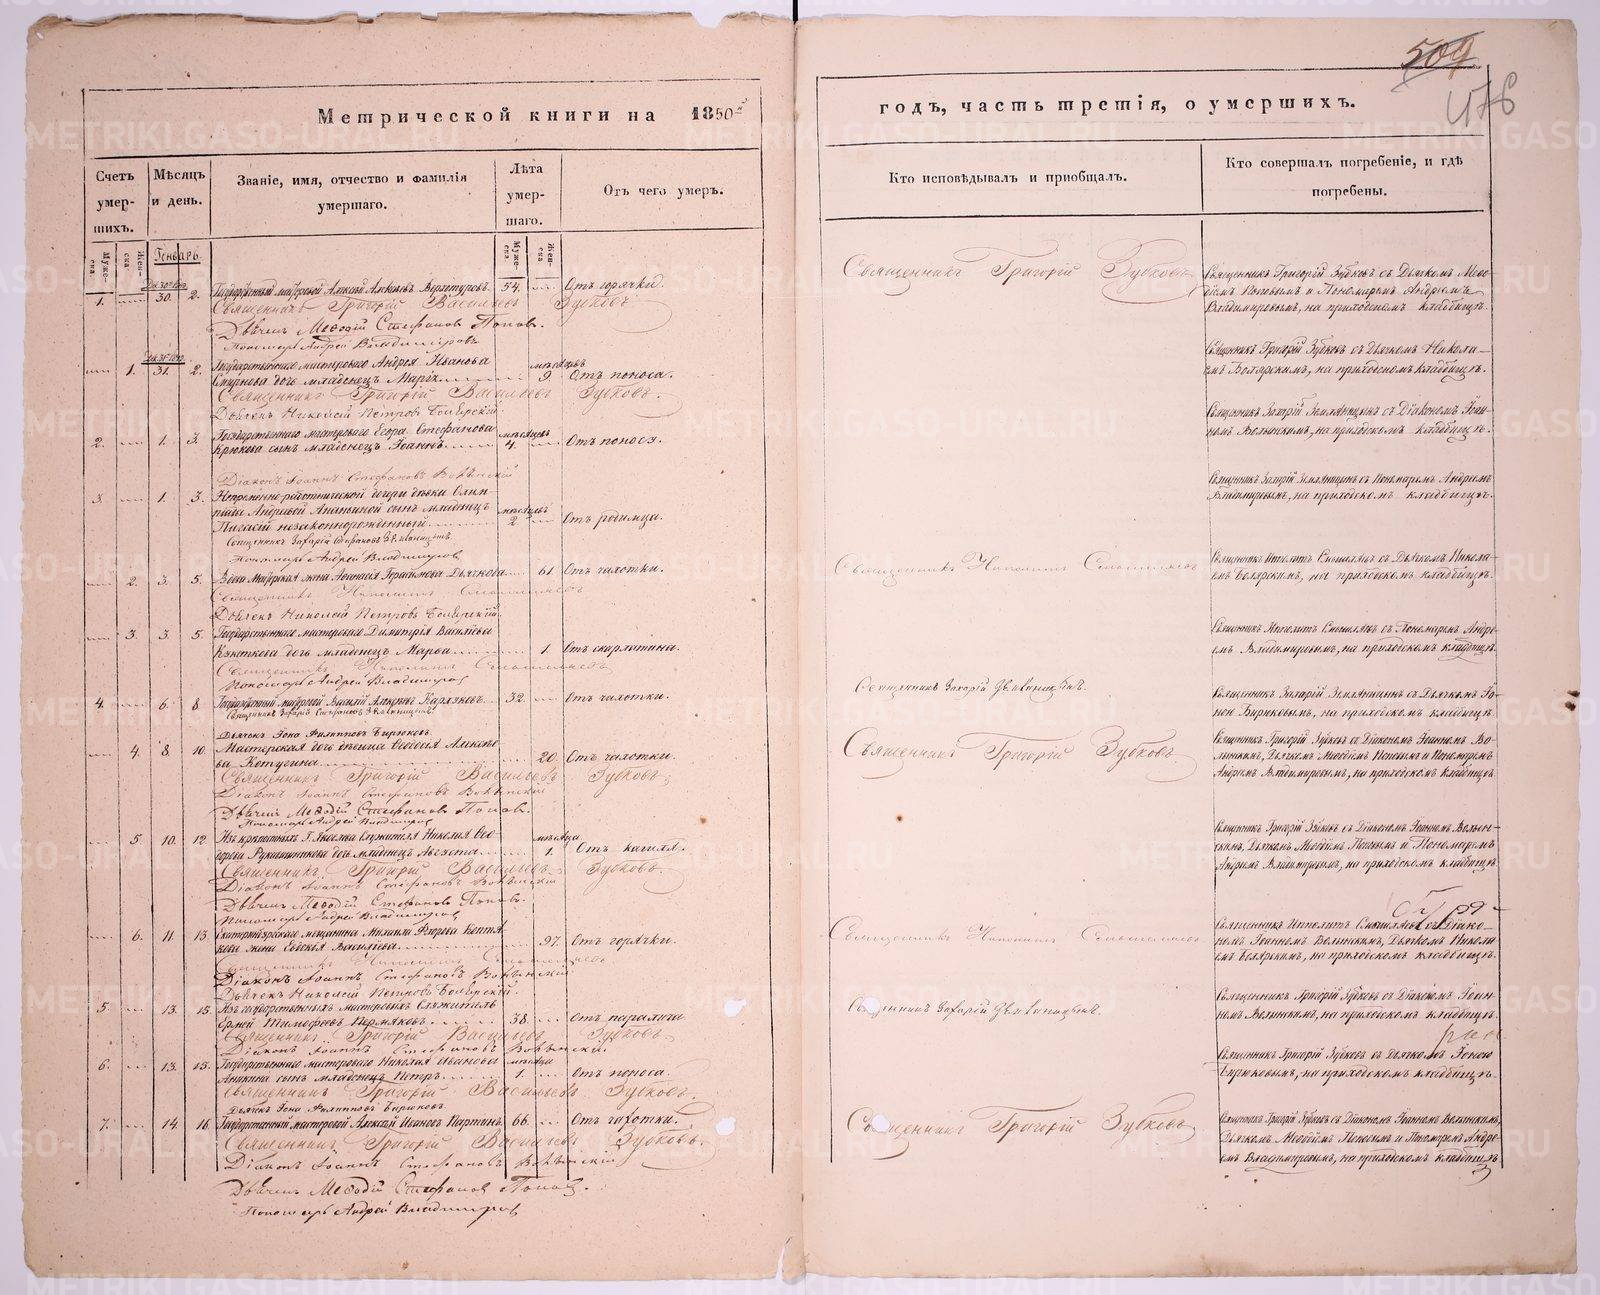 509
476
Метрической книги на 1850й
годъ, часть третія, о умершихъ.
Счетъ умер-шихъ.
Мѣсяцъ и день.
Званіе, имя, отчество и фамилія умершаго.
Лѣта умер-шаго.
Отъ чего умеръ.
Кто исповѣдывалъ и пріобщалъ.
Кто совершалъ погребеніе, и гдѣ погребены.
Муже-ска.
Жен-ска.
Генварь.
Муже-ска.
Жен-ска.
1. 30. 2. Государственный мастеровой Алексѣй Алексѣевъ Верхотуровъ. 54. Отъ горячки.
Священникъ Григорій Васильевъ Зубковъ
Дьячекъ Меѳодій Стефановъ Поповъ.
Пономарь Андрей Владимировъ
Священникъ Григорій Зубковъ
Священникъ Григорій Зубковъ съ Дьячкомъ Меѳо-
діемъ Поповымъ и Пономаремъ Андреемъ
Владимировымъ, на приходскомъ кладбищѣ.
1. 31. 2. Государственнаго мастероваго Андрея Иванова
Смирнова дочь младенецъ Марія мѣсяцовъ 9. Отъ поноса.
Священникъ Григорій Васильевъ Зубковъ.
Дьячекъ Николай Петровъ Боярскій
Священникъ Григорій Зубковъ съ Дьячкомъ Никола-
емъ Боярскимъ, на приходскомъ кладбищѣ.
2. 1. 3. Государственнаго мастероваго Егора Стефанова
Крюкова сынъ младенецъ Іоаннъ мѣсяцовъ 4. Отъ поноса.
Діаконъ Іоаннъ Стефановъ Волынскій
Священникъ Захарій Земляницынъ съ Діакономъ Іоан-
номъ Волынскимъ, на приходскомъ кладбищѣ.
3. 1. 3. Непремѣнно-работнической дочери дѣвки Олим-
піады Андреевой Ананьиной сынъ младенецъ
незаконнорожденный мѣсяцовъ 2 Отъ родимца.
Священникъ Захарій Стефановъ Земляницынъ
Пономарь Андрей Владимировъ
Священникъ Захарій Земляницынъ съ Пономаремъ Андреемъ
Владимировымъ, на приходскомъ кладбищѣ.
2. 3. 5. Вдова Мастерская жена Аѳанасія Герасимова Дьячкова 61. Отъ чахотки.
Священникъ Ипполитъ Смышляевъ
Дьячекъ Николай Петровъ Боярскій
Священникъ Ипполитъ Смышляевъ
Священникъ Ипполитъ Смышляевъ съ Дьячкомъ Никола-
емъ Боярскимъ, на приходскомъ кладбищѣ.
3. 3. 5. Государственнаго мастероваго Димитрія Васильева
дочь младенецъ Марѳа 1. Отъ скарлатина.
Священникъ Ипполитъ Смышляевъ
Пономарь Андрей Владимировъ
Священникъ Ипполитъ Смышляевъ съ Пономаремъ Андре-
емъ Владимировымъ, на приходскомъ кладбищѣ.
4. 6. 8 Государственный мастеровой Василій Алексѣевъ 32. Отъ чахотки.
Священникъ Захарій Стефановъ Земляницынъ
Дьячекъ Іона Филипповъ Бирюковъ.
Священникъ Захарій Земляницынъ.
Священникъ Захарій Земляницынъ съ Дьячкомъ Іо-
ною Бирюковымъ, на приходскомъ кладбищѣ.
4. 8. 10. Мастерская дочь дѣвица Ѳеодосія Алексѣе-
ва Кетугина 20. Отъ чахотки.
Священникъ Григорій Васильевъ Зубковъ.
Діаконъ Іоаннъ Стефановъ Волынскій
Дьячекъ Меѳодій Стефановъ Поповъ.
Пономарь Андрей Владимировъ
Священникъ Григорій Зубковъ.
Священникъ Григорій Зубковъ съ Діакономъ Іоанномъ Во-
лынскимъ, Дьячкомъ Меѳодіемъ Поповымъ и Пономаремъ
Андреемъ Владимировымъ, на приходскомъ кладбищѣ.
5. 10. 12. Изъ крѣпостныхъ Г. Яковлева Служителя Николая Ѳео-
дорова Рукавишникова дочь младенецъ Августа мѣсяца 1. Отъ кашля.
Священникъ Григорій Васильевъ Зубковъ.
Діаконъ Іоаннъ Стефановъ Волынскій
Дьячекъ Меѳодій Стефановъ Поповъ.
Пономарь Андрей Владимировъ
Священникъ Григорій Зубковъ съ Діакономъ Іоанномъ Волын-
скимъ, Дьячкомъ Меѳодіемъ Поповымъ и Пономаремъ
Андреемъ Владимировымъ, на приходскомъ кладбищѣ.
6. 11. 13. Екатеринбургскаго мещанина Михаила Ѳедорова
жена Евдокія Васильева 97. Отъ горячки.
Священникъ Ипполитъ Смышляевъ
Діаконъ Іоаннъ Стефановъ Волынскій
Дьячекъ Николай Петровъ Боярскій.
Священникъ Ипполитъ Смышляевъ
Священникъ Ипполитъ Смышляевъ съ Діако-
номъ Іоанномъ Волынскимъ, Дьячкомъ Никола-
емъ Боярскимъ, на приходскомъ кладбищѣ.
5. 13. 15. Изъ государственныхъ мастеровыхъ Служитель
Тимофеевъ Пермяковъ 38. Отъ паралича
Священникъ Григорій Васильевъ Зубковъ.
Діаконъ Іоаннъ Стефановъ Волынскій
Священникъ Захарій Земляницынъ.
Священникъ Григорій Зубковъ съ Діакономъ Іоан-
номъ Волынскимъ, на приходскомъ кладбищѣ.
6. 13. 15. Государственнаго мастероваго Николая Иванова
Аникина сынъ младенецъ Петръ мѣсяца 1. Отъ поноса.
Священникъ Григорій Васильевъ Зубковъ.
Дьячекъ Іона Филипповъ Бирюковъ
Священникъ Григорій Зубковъ съ Дьячкомъ Іоною
Бирюковымъ, на приходскомъ кладбищѣ.
7. 14. 16. Государственный мастеровой Алексѣй Ивановъ Партинъ 66. Отъ чахотки.
Священникъ Григорій Васильевъ Зубковъ.
Діаконъ Іоаннъ Стефановъ Волынскій
Дьячекъ Меѳодій Стефановъ Поповъ.
Пономарь Андрей Владимировъ
Священникъ Григорій Зубковъ
Священникъ Григорій Зубковъ съ Діакономъ Іоанномъ Волынскимъ,
Дьячкомъ Меѳодіемъ Поповымъ и Пономаремъ Андре-
емъ Владимировымъ, на приходскомъ кладбищѣ
METRIKI.GASO-URAL.RU